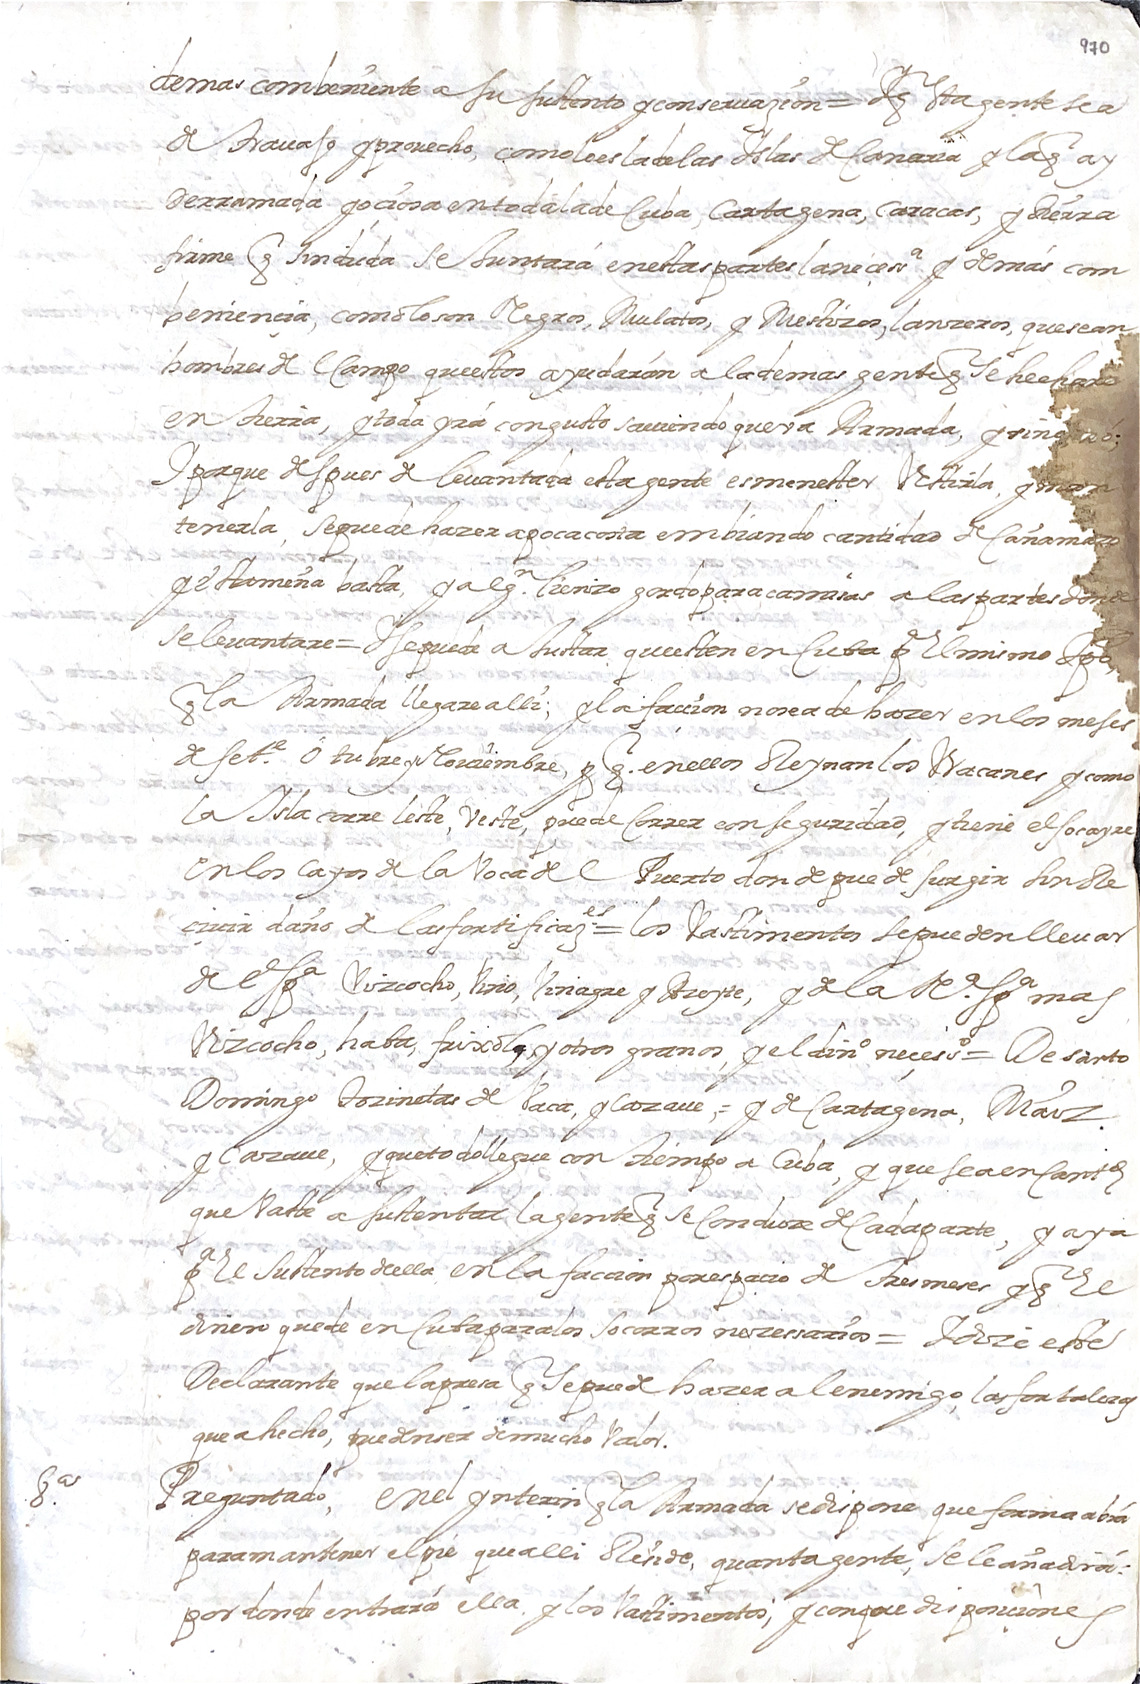 970
demas combeniente a su sustento y conseruazion = Y q̃ esta gente sea
de trauajo y prouecho, como lo es la de las Yslas de Canaria y la q̃ ay
derramada y ociosa en toda la de Cuba, Cartagena, Caracas, y tierra
firme q̃ sin duda se Juntará en estas partes la neçessª. y demás com
beniençia, como lo son Negros, Mulatos, y Mestizos, lanzeros, que sean
hombres de el Campo que estos ayudarán a la demas gente q̃ se hechare
en tierra, y toda yrá con gusto sauiendo que va Armada,
Y porque despues de leuantada esta gente es menester Vestirla, y man
tenerla, se puede hazer a poca costa embiando cantidad de Cañamazo
y estameña basta, y algn. lienzo gordo para camisas a las partes donde
se leuantare = Y se puede a Justar que esten en Cuba pª el mismo tpo
q̃ la Armada llegare alli; y la faccion no sea de hazer en los meses
de setᵉ. Otubre y Nouiembre, p q̃. en ellos Reynan los Vracanes y como
la Isla corre leste, Veste, puede Correr con seguridad, y tiene el socayre
en los cayos de la Voca de el Puerto donde puede surgir sin Re
ciuir daño de las fortificazes = los Vastimentos se pueden lleuar
de esPª Vizcocho, Vino, Vinagre y Azeyte, y de la Nª. esPª mas
Vizcocho, haba, frixoles, y otros granos, y el dinº neçessº = De santo
Domingo tozinetas de Vaca, y Cazaue, = y de Cartagena, Maiz.
y Cazaue, y que todo llegue con tiempo a Cuba, y que sea en Cantd
que Vaste a sustentar la gente q̃ se Conduxe de Cada parte, y aya
pª el sustento de ella en la faccion por espacio de tres meses y q̃ el
dinero quede en Cuba para los socorros nezessarios = Y dize este
Declarante que la presa q̃ se puede hazer al enemigo, las fortalezas
que a hecho, pueden ser de mucho Valor.
8.ª Preguntado, en el Ynterin q̃ la Armada se dispone que forma abrá
para mantener el pie que alli Reside, quanta gente, se le añadirá:
por donde entrará ella y los Vastimentos, y con que disposiciones